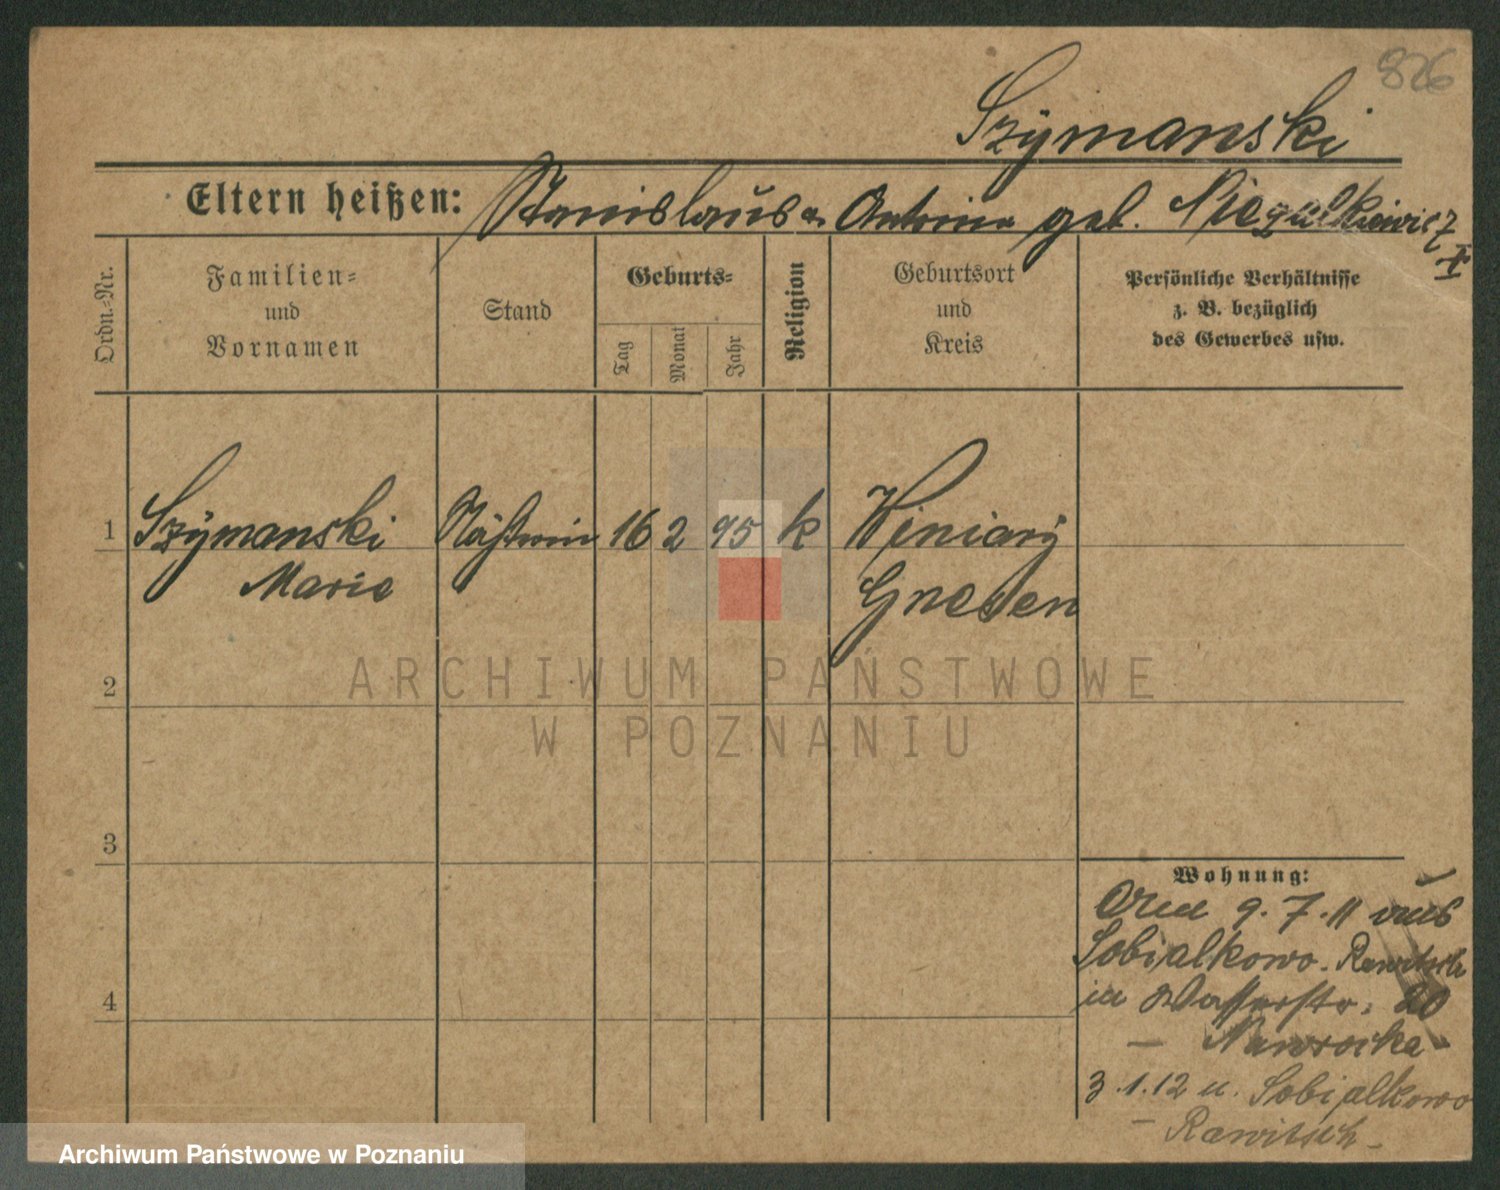 826
Szymanski
Eltern heißen: Stanislaus u. Antonina geb. Niezulkiewicz
Ordn.-Nr.
Familien-
und
Vornamen
Stand
Geburts-
Tag
Monat
Jahr
Religion
Geburtsort
und
Kreis
Persönliche Verhältnisse
z. B. bezüglich
des Gewerbes usw.
1 Szymanski Näherin 16 2 95 k Winiary
Marie Gnesen
2
ARCHIWUM PAŃSTWOWE
W POZNANIU
3
Wohnung:
9.7.11 aus
Sobialkowo. Rawitsch
4
in Wasserstr. 20
– Nawrocka –
3.1.12 n. Sobialkowo
– Rawitsch –
Archiwum Państwowe w Poznaniu